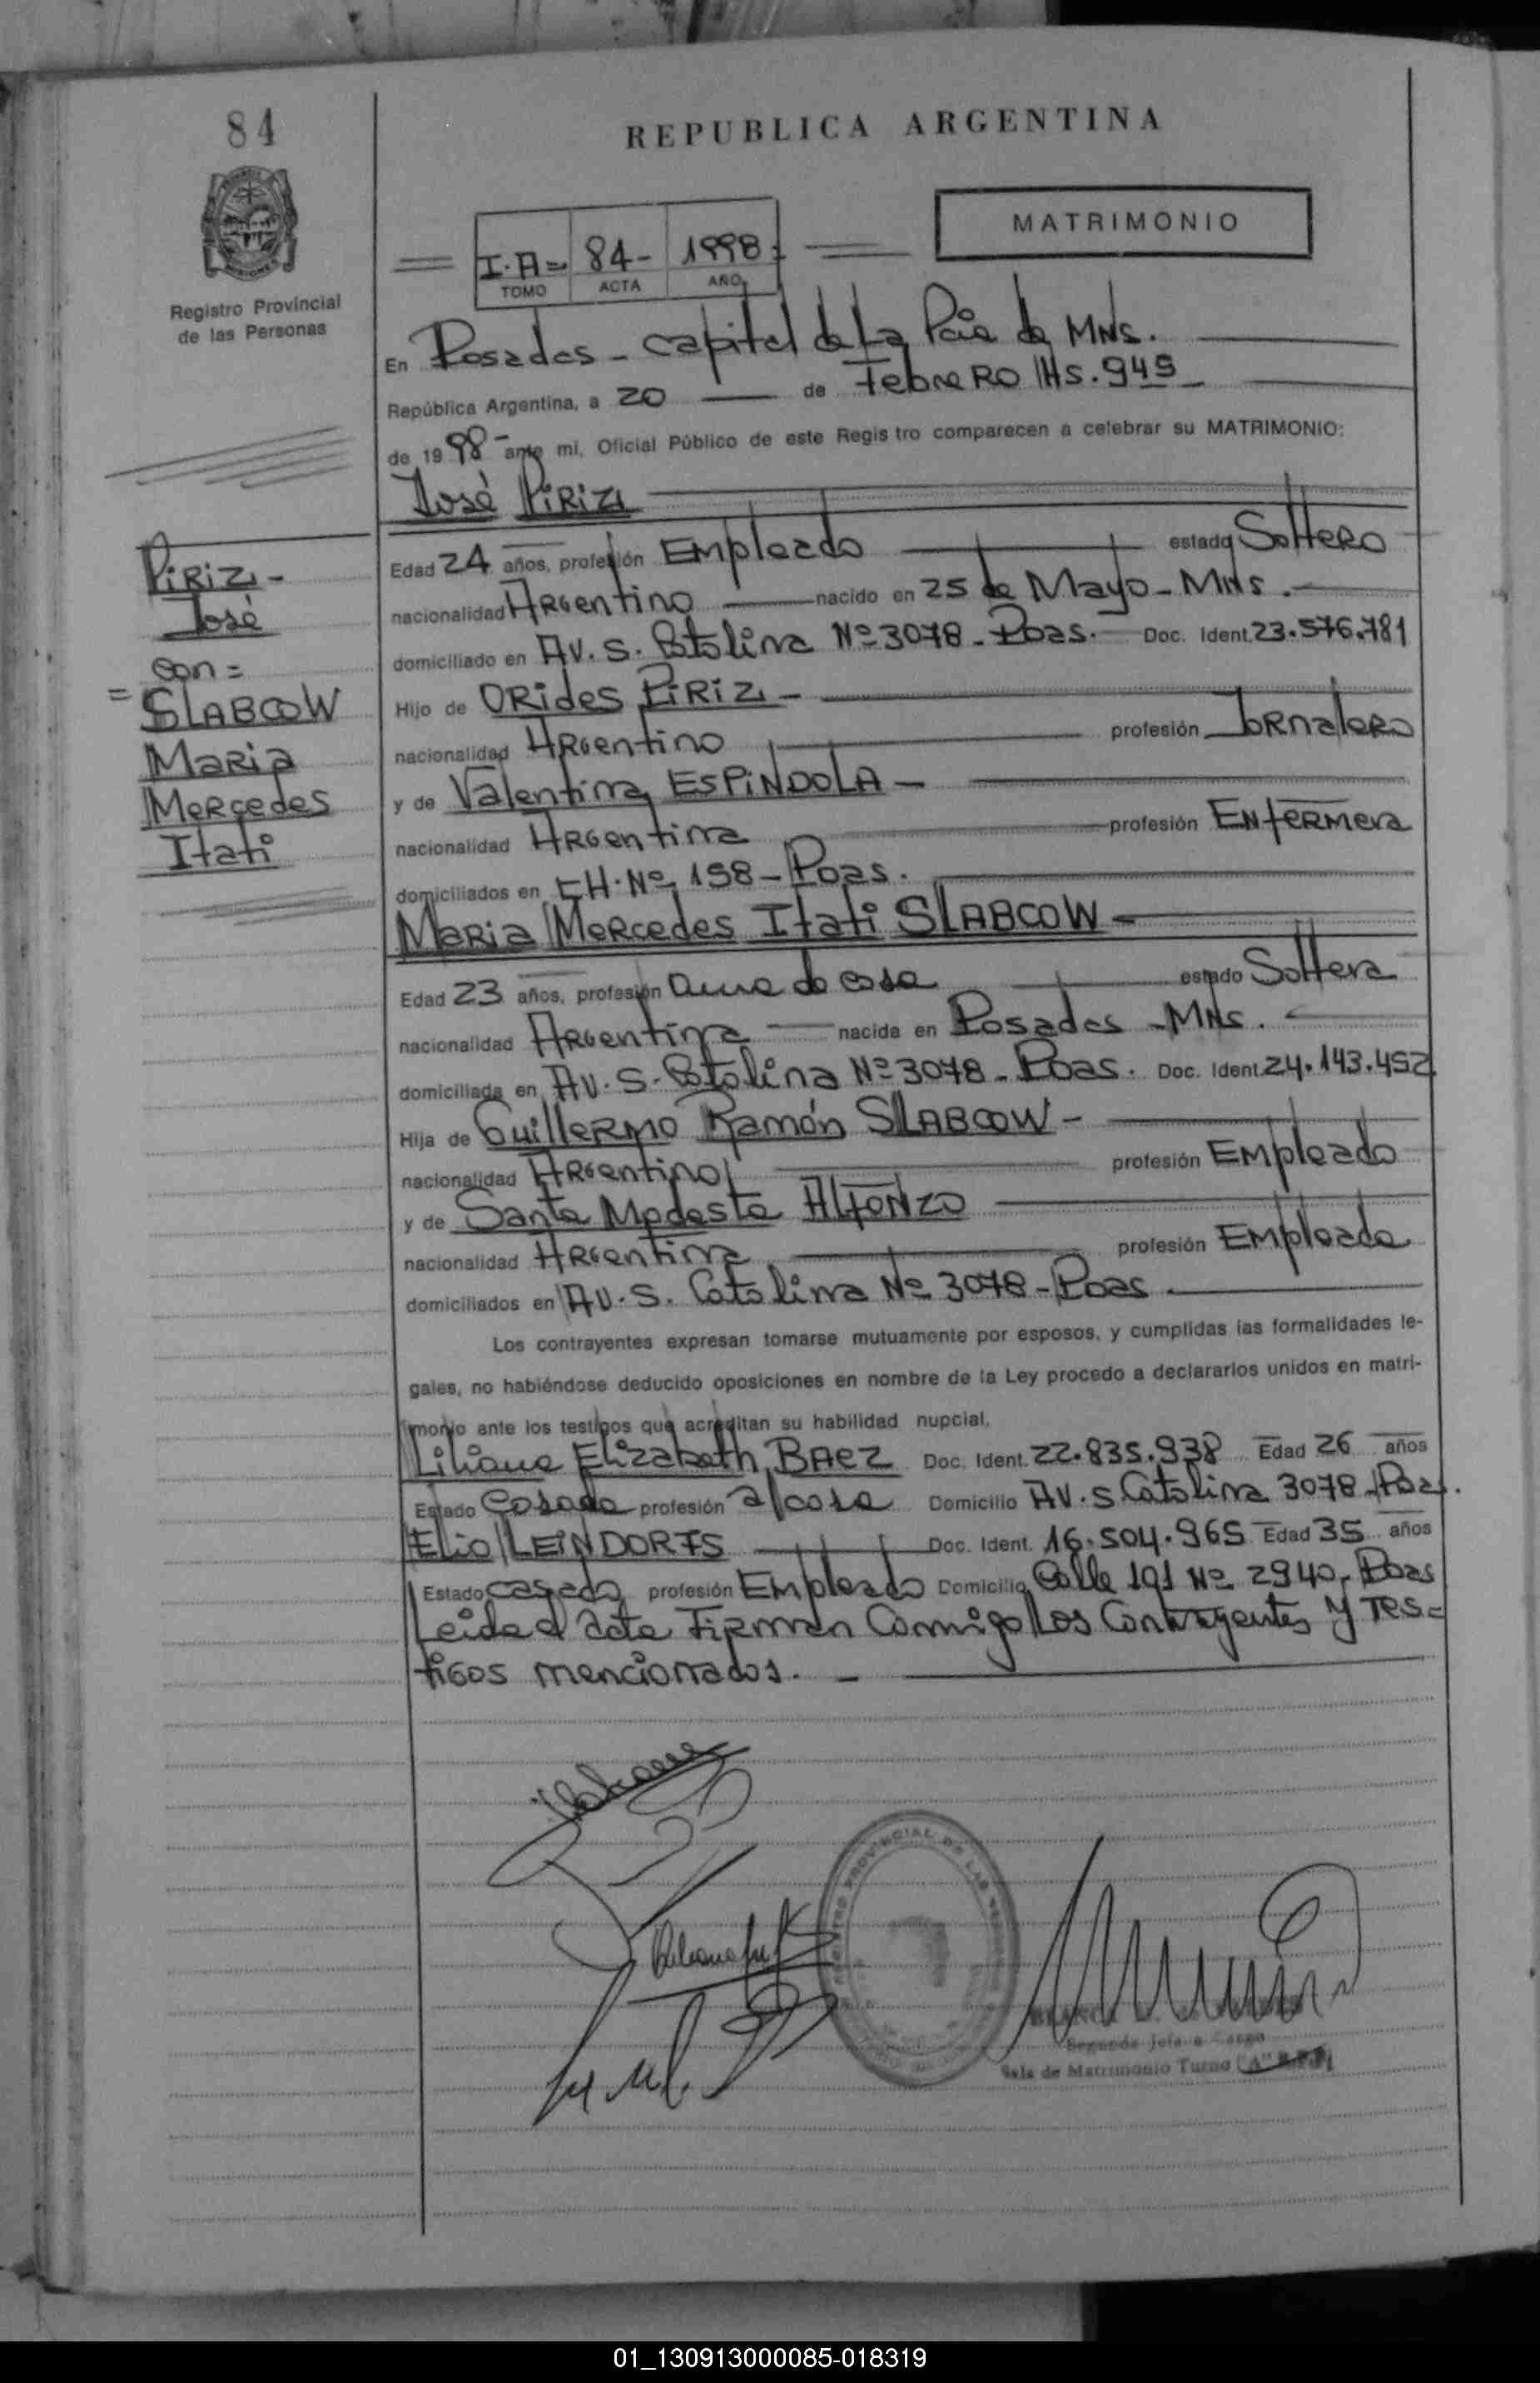 84
REPUBLICA ARGENTINA
MATRIMONIO
I·A= 84- 1998
TOMO ACTA AÑO
Registro Provincial
de las Personas
En Posadas - Capital de La Pcia de MNS.
República Argentina, a 20 de Febrero Hs. 945
de 19 98 ante mi, Oficial Público de este Registro comparecen a celebrar su MATRIMONIO:
José PIRIZ
Piriz -
José
con =
= SLABCOW
Maria
Mercedes
Itati
Edad 24 años, profesión Empleado estado Soltero
nacionalidad Argentino nacido en 25 de Mayo - MNS.
domiciliado en AV. S. Catalina Nº 3078 - Poas. Doc. Ident. 23.576.781
Hijo de ORides PiRiz -
nacionalidad Argentino profesión Jornalero
y de Valentina ESPiNDOLA -
nacionalidad Argentina profesión Enfermera
domiciliados en CH. Nº 198 - Poas.
Maria Mercedes Itati SLABCOW -
Edad 23 años, profesión ama de casa estado Soltera
nacionalidad Argentina nacida en Posadas - MNS.
domiciliada en AV. S. Catalina Nº 3078 - Poas. Doc. Ident. 24.143.452
Hija de Guillermo Ramón SLABCOW -
nacionalidad Argentino profesión Empleado
y de Santa Modesta Alfonzo
nacionalidad Argentina profesión Empleada
domiciliados en AV. S. Catalina Nº 3078 - Poas.
Los contrayentes expresan tomarse mutuamente por esposos, y cumplidas las formalidades le-
gales, no habiéndose deducido oposiciones en nombre de la Ley procedo a declararlos unidos en matri-
monio ante los testigos que acreditan su habilidad nupcial.
Liliana Elizabeth BAEZ Doc. Ident. 22.835.938 Edad 26 años
Estado Casada profesión a/casa Domicilio AV. S. Catalina 3078 - Poas.
Elio LEiNDORFS Doc. Ident. 16.504.965 Edad 35 años
Estado casado profesión Empleado Domicilio Calle 191 Nº 2940 - Poas
Leida el acta Firman Conmigo Los Contrayentes y Tes=
tigos mencionados. -
Segunda Jefa a Cargo
Sala de Matrimonio Turno "A"
01_130913000085-018319